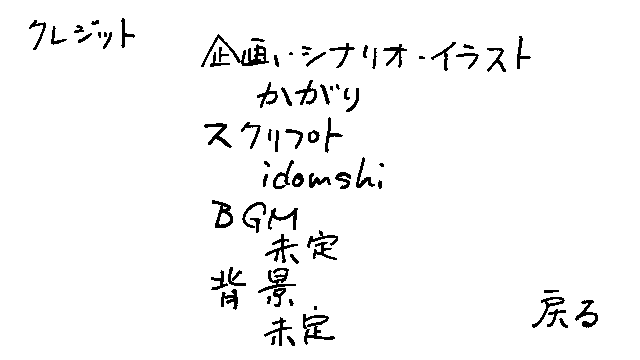 クレジット
企画・シナリオ・イラスト
かがり
スクリプト
idomshi
BGM
未定
背景
未定
戻る